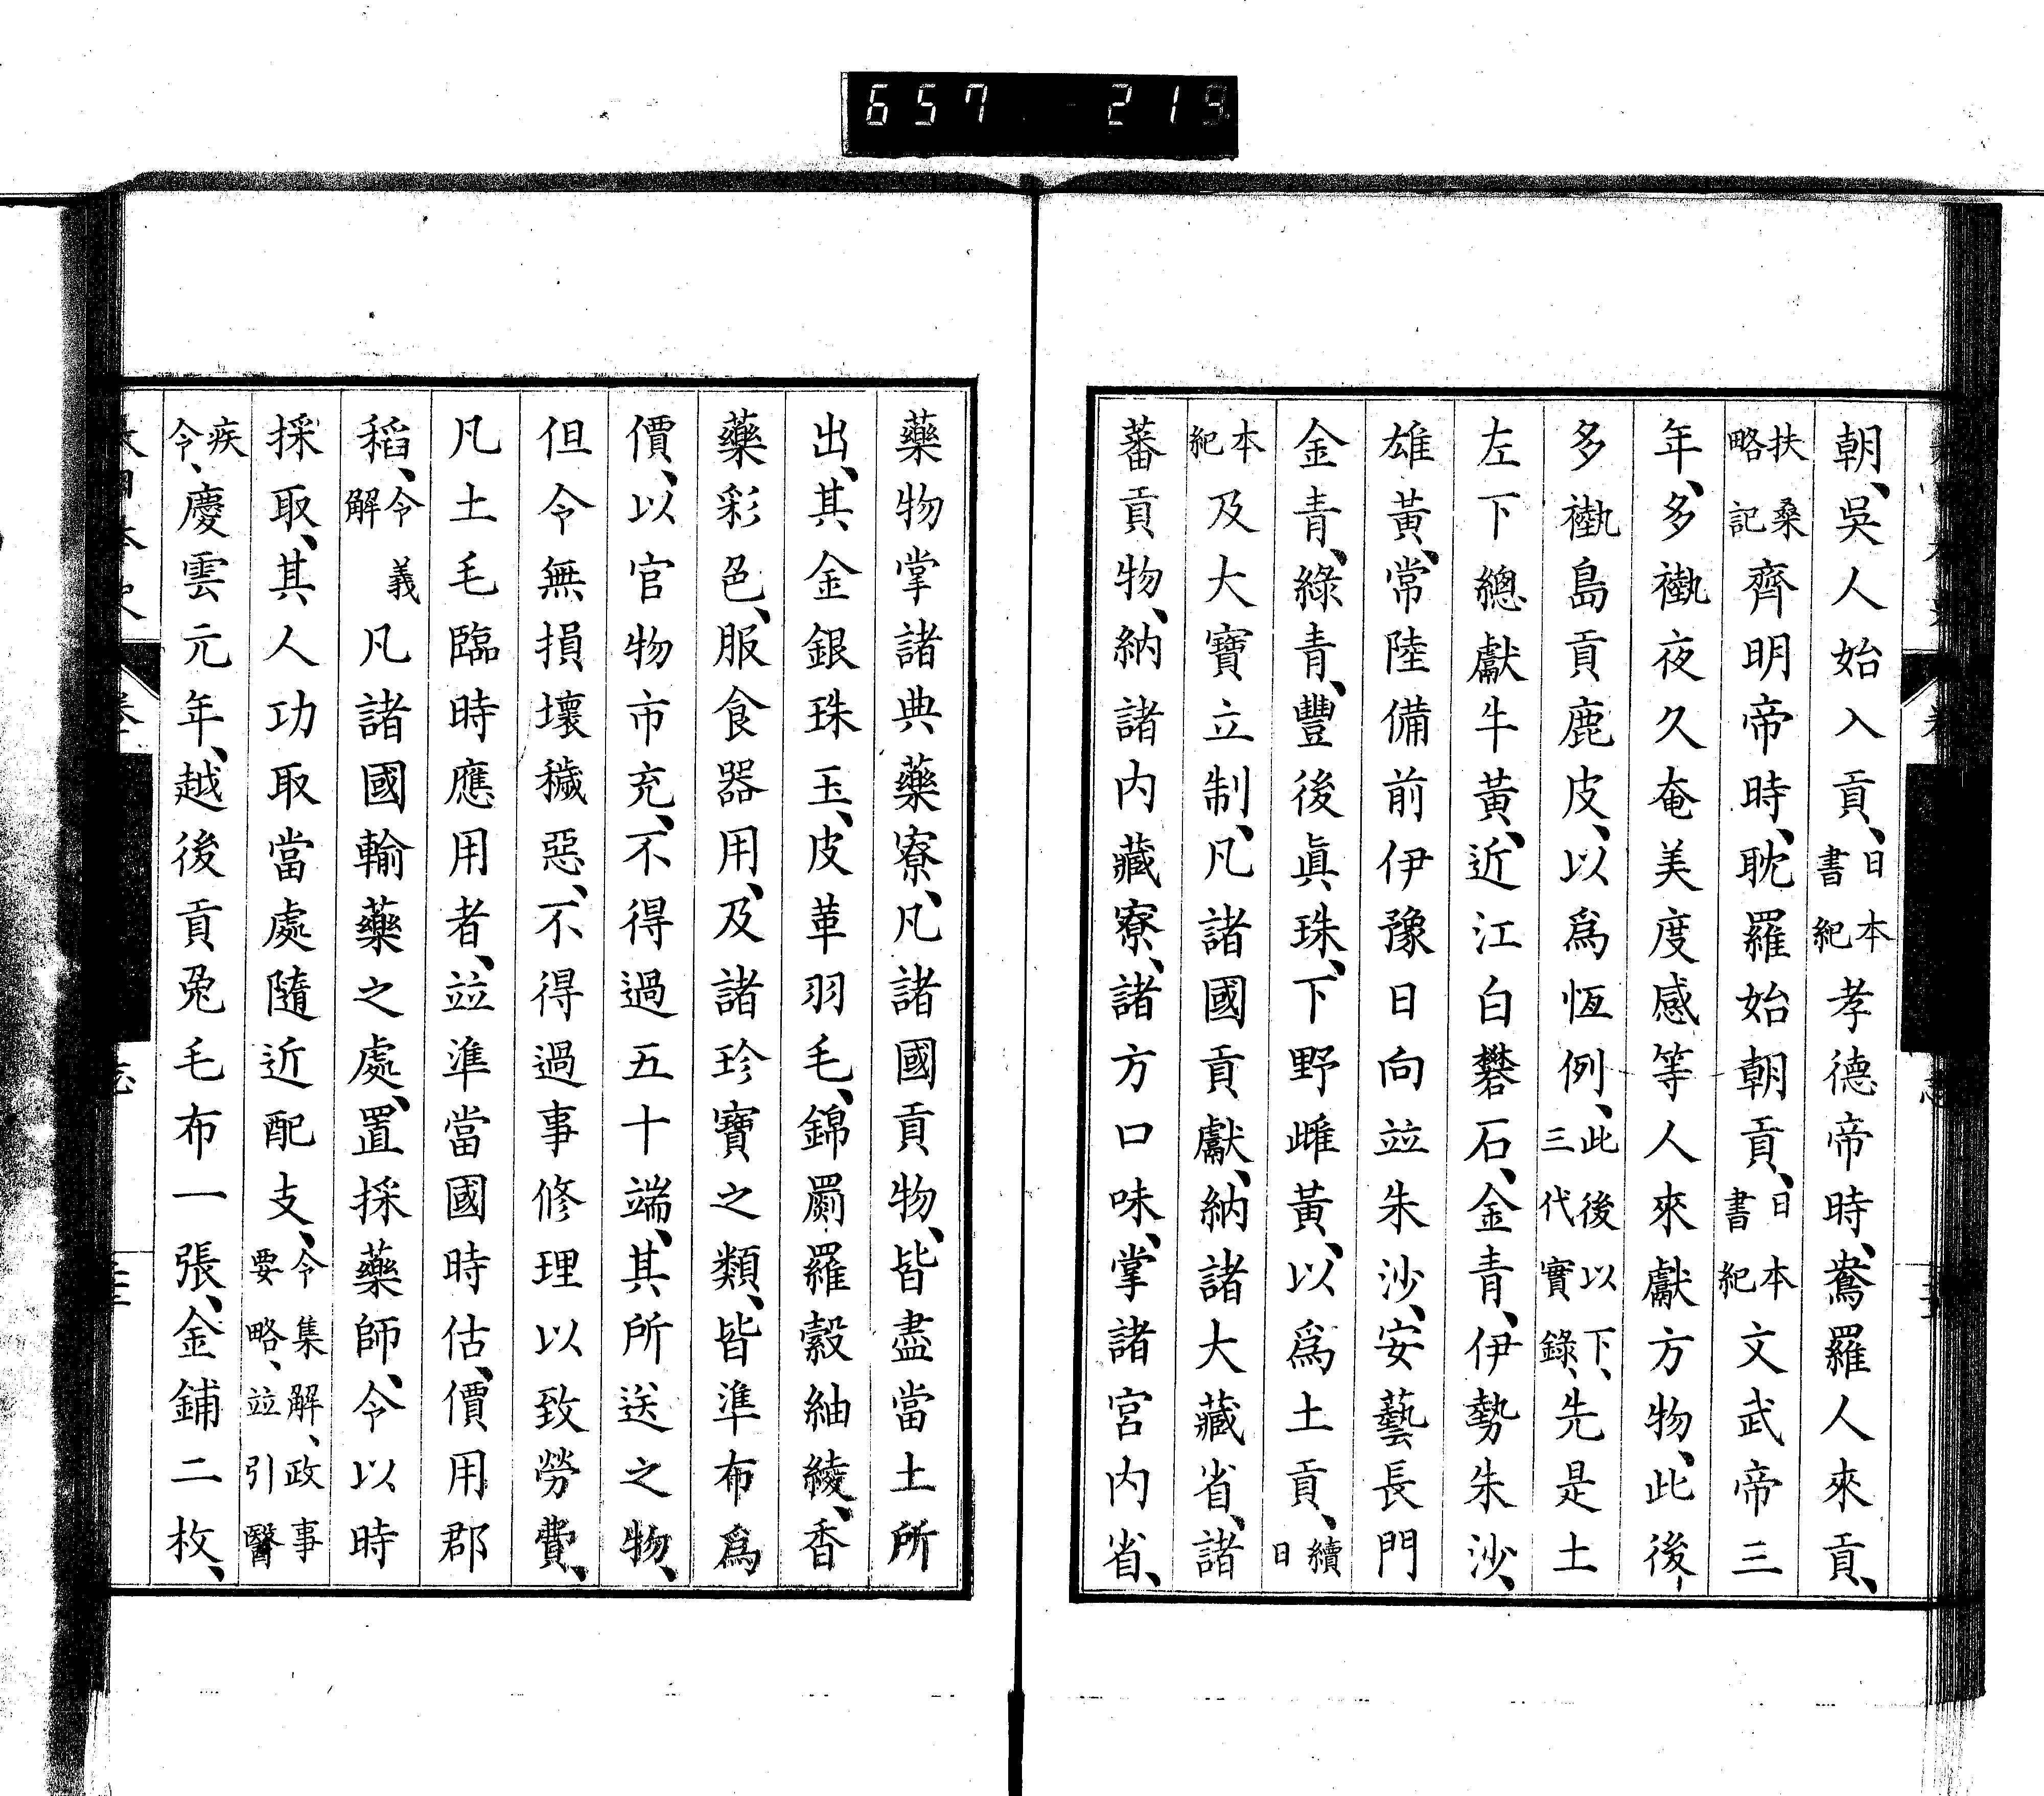 657 219
朝、吳人始入貢、日本書紀孝德帝時、鴦羅人來貢、
扶桑略記齊明帝時、耽羅始朝貢、日本書紀文武帝三
年、多褹夜久奄美度感等人來獻方物、此後、
多褹島貢鹿皮、以爲恆例、此後以下、三代實錄、先是土
左下總獻牛黃、近江白礬石、金青、伊勢朱沙、
雄黃、常陸備前伊豫日向竝朱沙、安藝長門
金青、綠青、豐後眞珠、下野雌黃、以爲土貢、續日
本紀及大寶立制、凡諸國貢獻、納諸大藏省、諸
蕃貢物、納諸內藏寮、諸方口味、掌諸宮內省、
藥物掌諸典藥寮、凡諸國貢物、皆盡當土所
出、其金銀珠玉、皮革羽毛、錦罽羅縠紬綾、香
藥彩色、服食器用、及諸珍寶之類、皆準布爲
價、以官物市充、不得過五十端、其所送之物、
但令無損壞穢惡、不得過事修理以致勞費、
凡土毛臨時應用者、竝準當國時估、價用郡
稻、令義解凡諸國輸藥之處、置採藥師、令以時
採取、其人功取當處隨近配支、令集解、政事要略、竝引醫
疾令、慶雲元年、越後貢兔毛布一張、金鋪二枚、